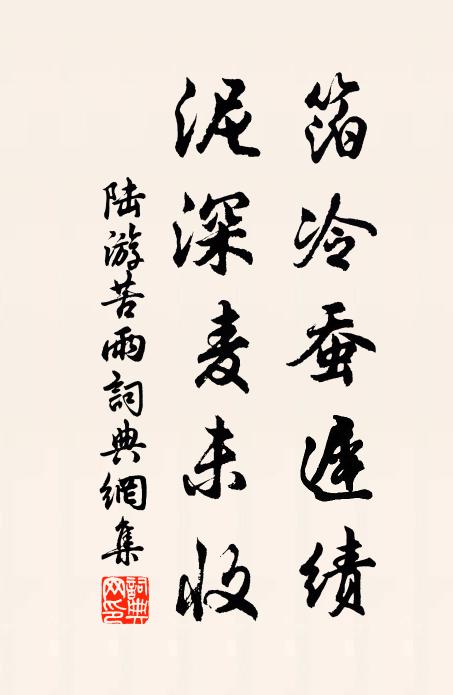 箔冷蚕遲績
泥深麦未收
陆游苦雨詞典網集
詞典网印